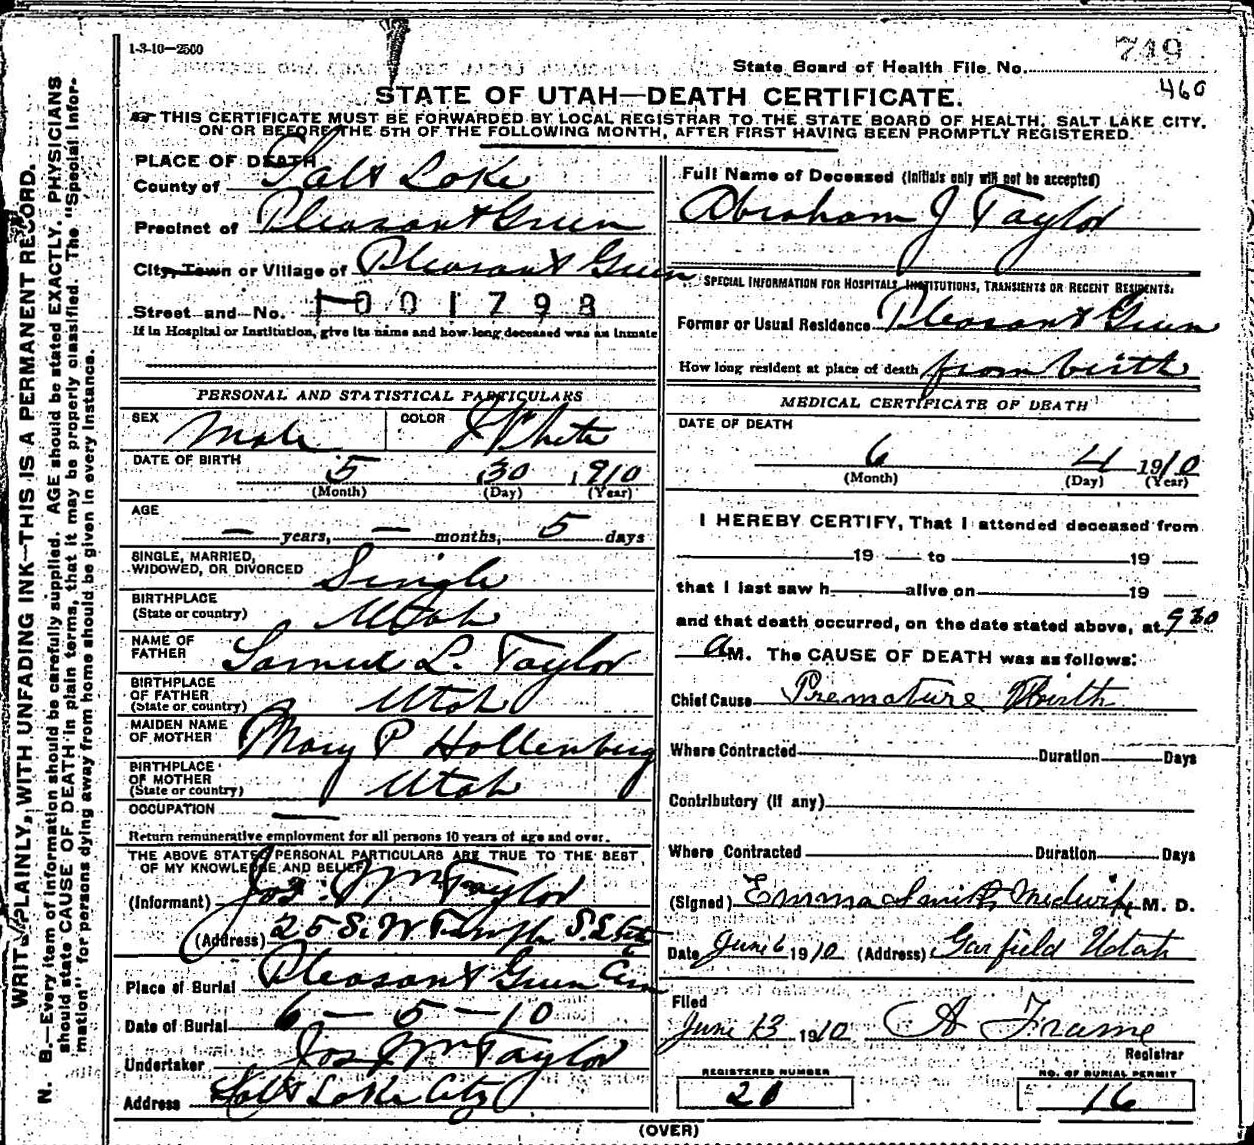 1-3-10—2500
749
State Board of Health File No.
460
STATE OF UTAH—DEATH CERTIFICATE.
THIS CERTIFICATE MUST BE FORWARDED BY LOCAL REGISTRAR TO THE STATE BOARD OF HEALTH, SALT LAKE CITY,
ON OR BEFORE THE 5TH OF THE FOLLOWING MONTH, AFTER FIRST HAVING BEEN PROMPTLY REGISTERED.
WRITE PLAINLY, WITH UNFADING INK—THIS IS A PERMANENT RECORD.
N. B.—Every item of information should be carefully supplied. AGE should be stated EXACTLY. PHYSICIANS
should state CAUSE OF DEATH in plain terms, that it may be properly classified. The "Special Infor-
mation" for persons dying away from home should be given in every instance.
PLACE OF DEATH
County of Salt Lake
Precinct of Pleasant Green
City, Town or Village of Pleasant Green
Street and No. 1001798
If in Hospital or Institution, give its name and how long deceased was an inmate
PERSONAL AND STATISTICAL PARTICULARS
SEX Male COLOR White
DATE OF BIRTH 5 30 1910
(Month) (Day) (Year)
AGE
— years, — months, 5 days
SINGLE, MARRIED,
WIDOWED, OR DIVORCED Single
BIRTHPLACE
(State or country) Utah
NAME OF
FATHER Samuel L. Taylor
BIRTHPLACE
OF FATHER
(State or country) Utah
MAIDEN NAME
OF MOTHER Mary P Hollenburg
BIRTHPLACE
OF MOTHER
(State or country) Utah
OCCUPATION —
Return remunerative employment for all persons 10 years of age and over.
THE ABOVE STATED PERSONAL PARTICULARS ARE TRUE TO THE BEST
OF MY KNOWLEDGE AND BELIEF
(Informant) Jos. Wm Taylor
(Address) 25 S. W Temple S.L. City
Place of Burial Pleasant Green Cem
Date of Burial 6 — 5 — 10
Undertaker Jos Wm Taylor
Address Salt Lake City
Full Name of Deceased (Initials only will not be accepted)
Abraham J Taylor
SPECIAL INFORMATION FOR HOSPITALS, INSTITUTIONS, TRANSIENTS OR RECENT RESIDENTS.
Former or Usual Residence Pleasant Green
How long resident at place of death from birth
MEDICAL CERTIFICATE OF DEATH
DATE OF DEATH
6 4 1910
(Month) (Day) (Year)
I HEREBY CERTIFY, That I attended deceased from
19 to 19
that I last saw h alive on 19
and that death occurred, on the date stated above, at 9 30
a M. The CAUSE OF DEATH was as follows:
Chief Cause Premature Birth
Where Contracted Duration Days
Contributory (if any)
Where Contracted Duration Days
(Signed) Emma Smith Midwife M. D.
Date June 6 1910 (Address) Garfield Utah
Filed
June 13 1910 A Frame
Registrar
REGISTERED NUMBER
NO. OF BURIAL PERMIT
20
16
(OVER)